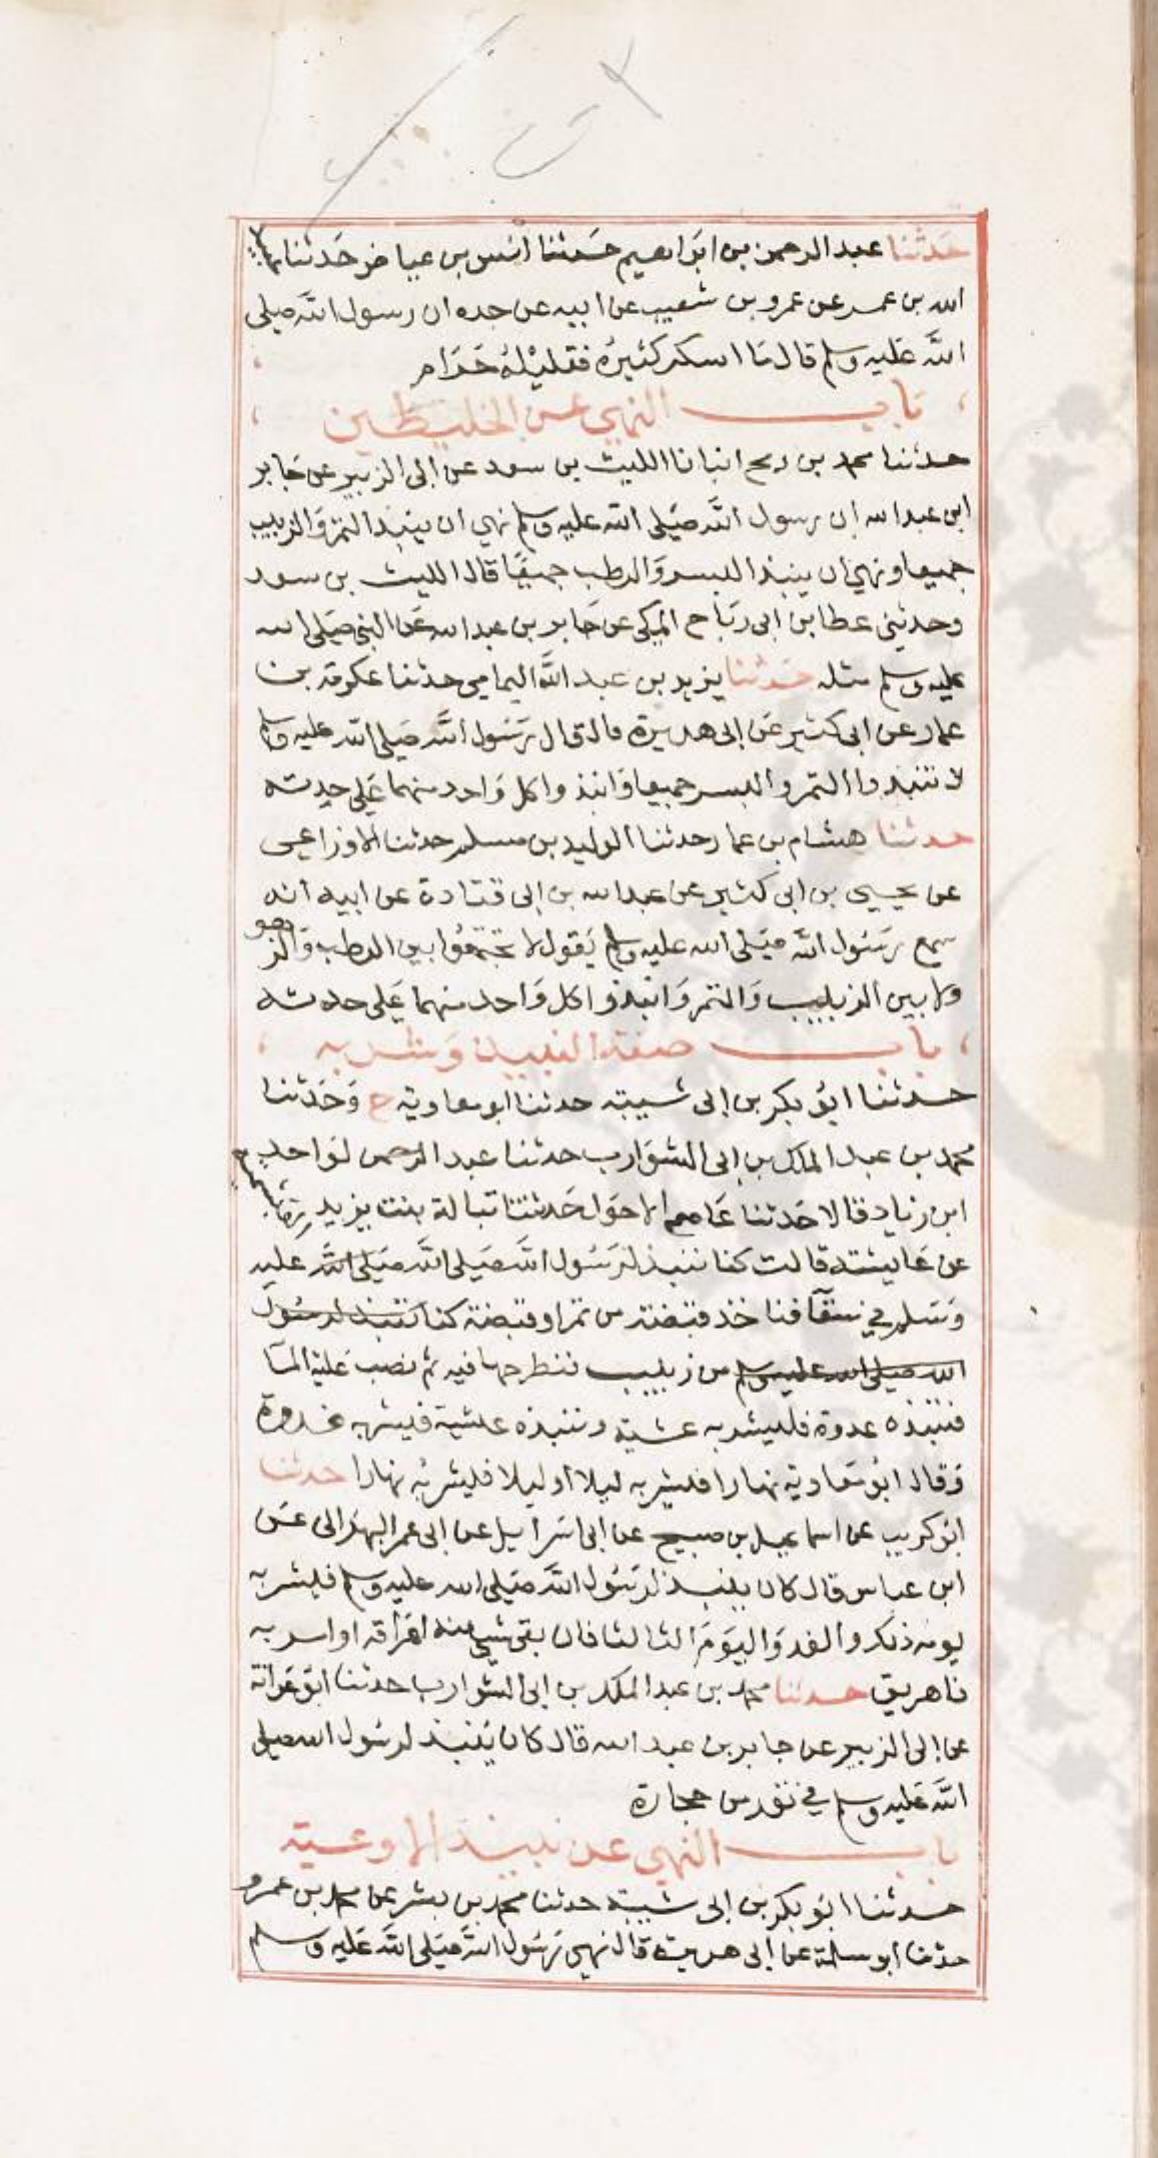 حدثنا عبد الرحمن بن ابراهيم حدثنا انس بن عياض حدثنا
الله بن عمر عن عمرو بن شعيب عن ابيه عن جده ان رسول الله صلى
الله عليه وسلم قال ما اسكر كثيره فقليله حرام
باب النهي عن الخليطين
حدثنا محمد بن رمح انبانا الليث بن سعد عن ابى الزبير عن جابر
ابن عبد الله ان رسول الله صلى الله عليه وسلم نهي ان ينبذ التمر والزبيب
جميعا ونهي ان ينبذ البسر والرطب جميعا قال الليث بن سعد
وحدثني عطا بن ابى رباح المكي عن جابر بن عبد الله عن النبي صلى الله
عليه وسلم مثله حدثنا يزيد بن عبد الله اليمامي حدثنا عكرمة بن
عمار عن ابى كثير عن ابى هريرة قال قال رسول الله صلى الله عليه وسلم
لا تنبذوا التمر والبسر جميعا وانبذوا كل واحد منهما على حدته
حدثنا هشام بن عمار حدثنا الوليد بن مسلم حدثنا الاوزاعي
عن يحيى بن ابى كثير عن عبد الله بن ابى قتادة عن ابيه انه
سمع رسول الله صلى الله عليه وسلم يقول لا تجتمعوا بين الرطب والزهو
ولا بين الزبيب والتمر وانبذوا كل واحد منهما على حدته
باب صفة النبيذ وشربه
حدثنا ابو بكر بن ابى شيبة حدثنا ابو معاوية ح وحدثنا
محمد بن عبد الملك بن ابى الشوارب حدثنا عبد الرحمن لواحد
ابن زياد قالا حدثنا عاصم الاحول حدثتنا تبالة بنت يزيد
عن عايشة قالت كنا ننبذ لرسول الله صلى الله صلى الله عليه
وسلم في سقآ فناخذ قبضة من تمر او قبضة كنا ننبذ لرسول
الله صلى الله عليه وسلم من زبيب فنطرحها فيه ثم نصب عليه المآ
فننبذه غدوة فليشربه عشية وننبذه عشية فيشربه غدوة
وقال ابو معاوية نهارا فليشربه ليلا أو ليلا فليشربه نهارا حدثنا
ابو كريب عن اسماعيل بن صبيح عن ابى اسرائيل عن ابى عمر البهرانى عن
ابن عباس قال كان ينبذ لرسول الله صلى الله عليه وسلم فيشربه
يومه ذلك والغد واليوم الثالث فان بقي شيي منه اهراقه او امر به
فاهريق حدثنا محمد بن عبد الملك بن ابى الشوارب حدثنا ابو عوانة
عن ابى الزبير عن جابر بن عبد الله قال كان ينبذ لرسول الله صلى
الله عليه وسلم في تور من حجارة
باب النهي عن نبيذ الاوعية
حدثنا ابو بكر بن ابى شيبة حدثنا محمد بن بشر عن محمد بن عمرو
حدثنا ابو سلمة عن ابى هريرة قال نهي رسول الله صلى الله عليه وسلم